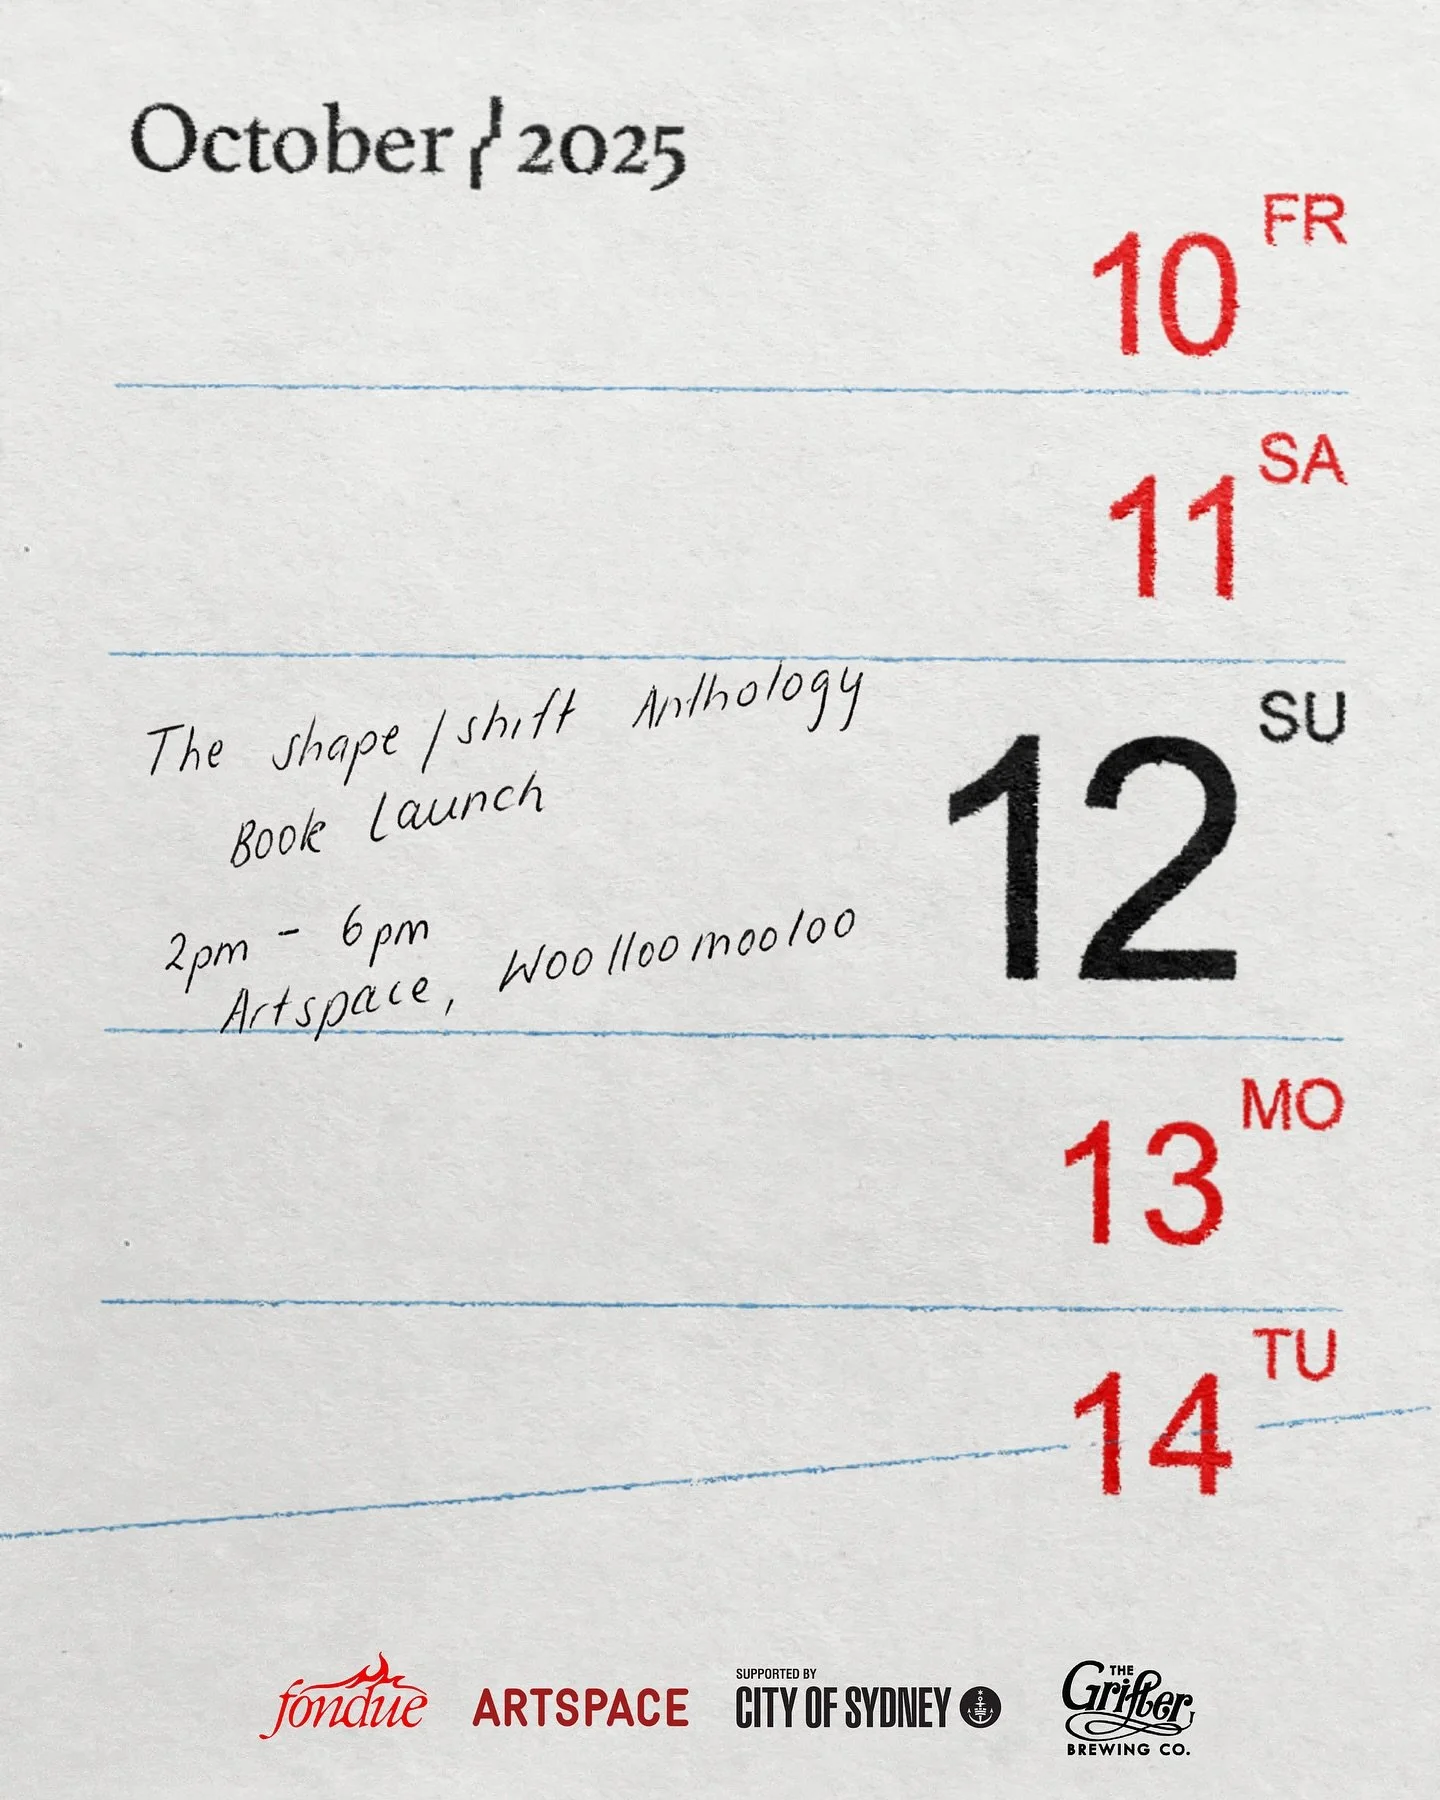 October / 2025
FR
10
SA
11
SU
12
The shape / shift Anthology
Book Launch
2pm - 6pm
Artspace, Woolloomooloo
MO
13
TU
14
fondue
ARTSPACE
SUPPORTED BY
CITY OF SYDNEY
THE
Grifter
BREWING CO.